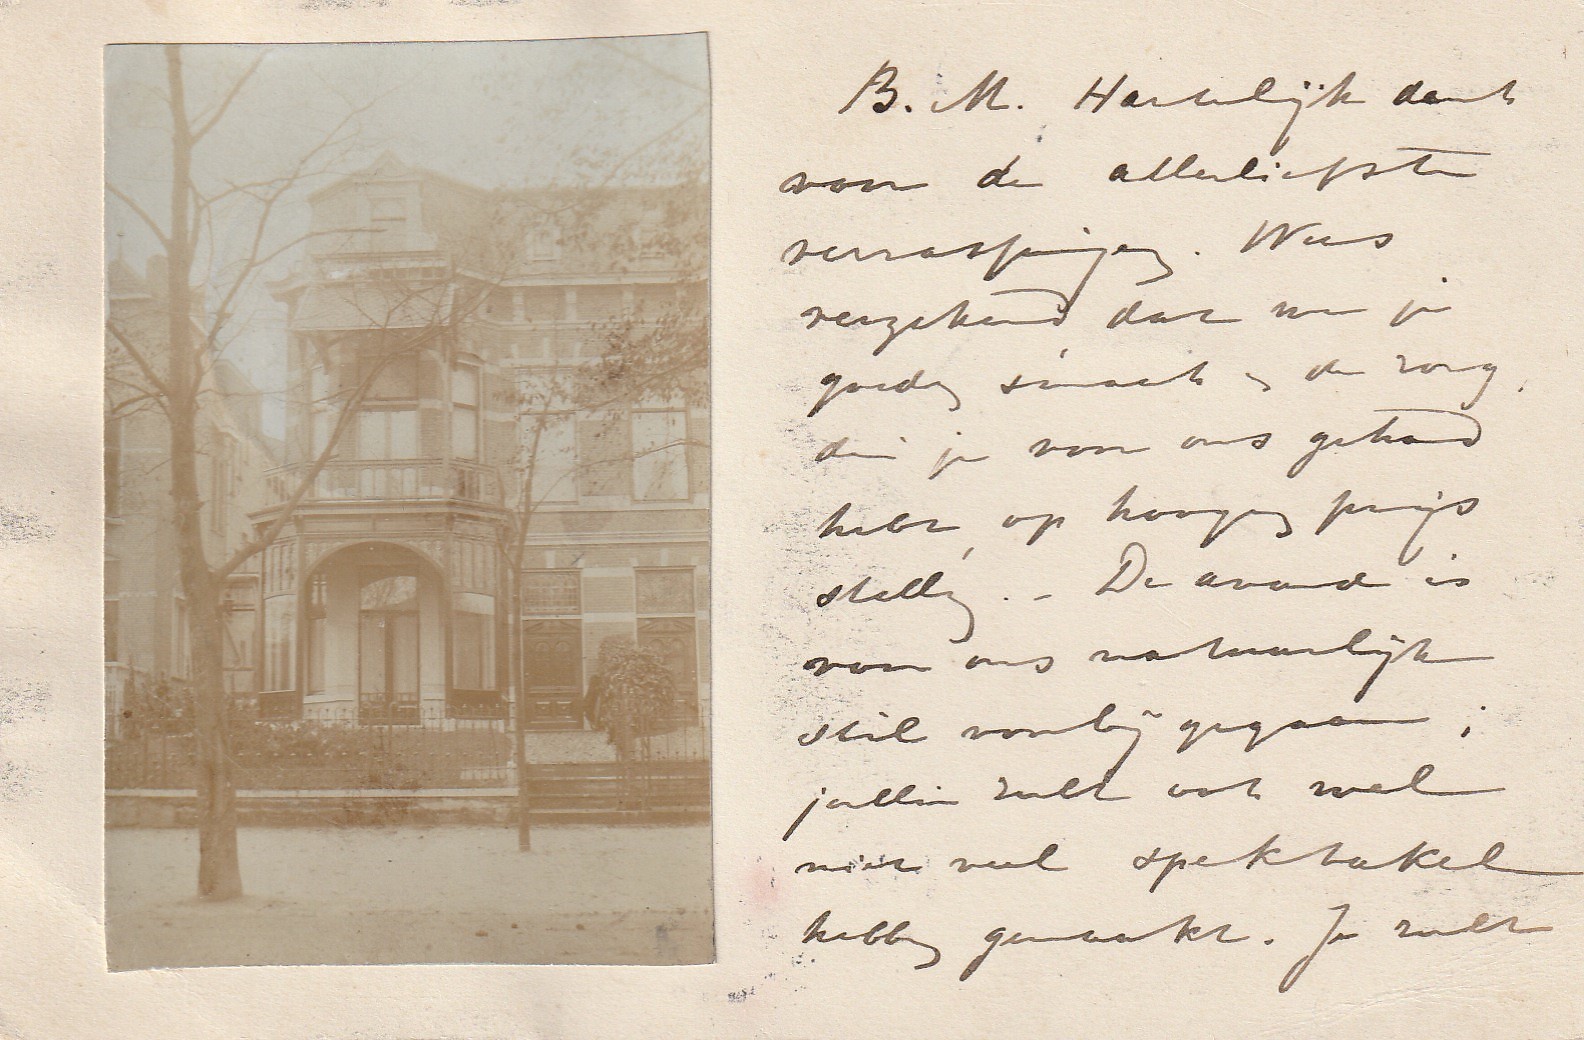 B. M. Hartelijk dank
voor de allerliefste
verrassingen. Wees
verzekerd dat we je
goeden smaak en de zorg,
die je voor ons gehad
hebt, op hoogen prijs
stellen. - De avond is
voor ons natuurlijk
stil voorbij gegaan;
jullie zult ook wel
niet veel spektakel
hebben gemaakt. Je zult